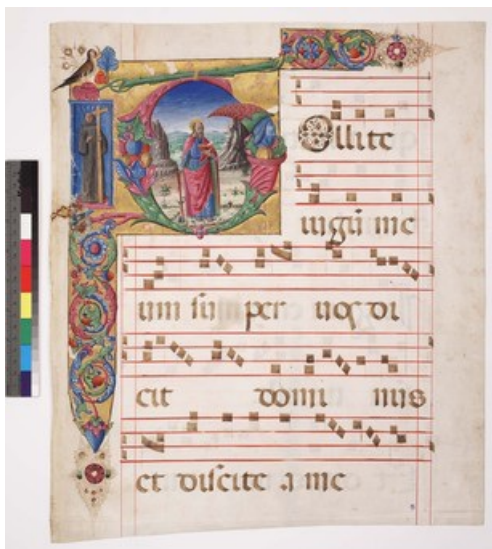 TOllite
iugū me
um su per uos di
cit domi nus
et discite a me